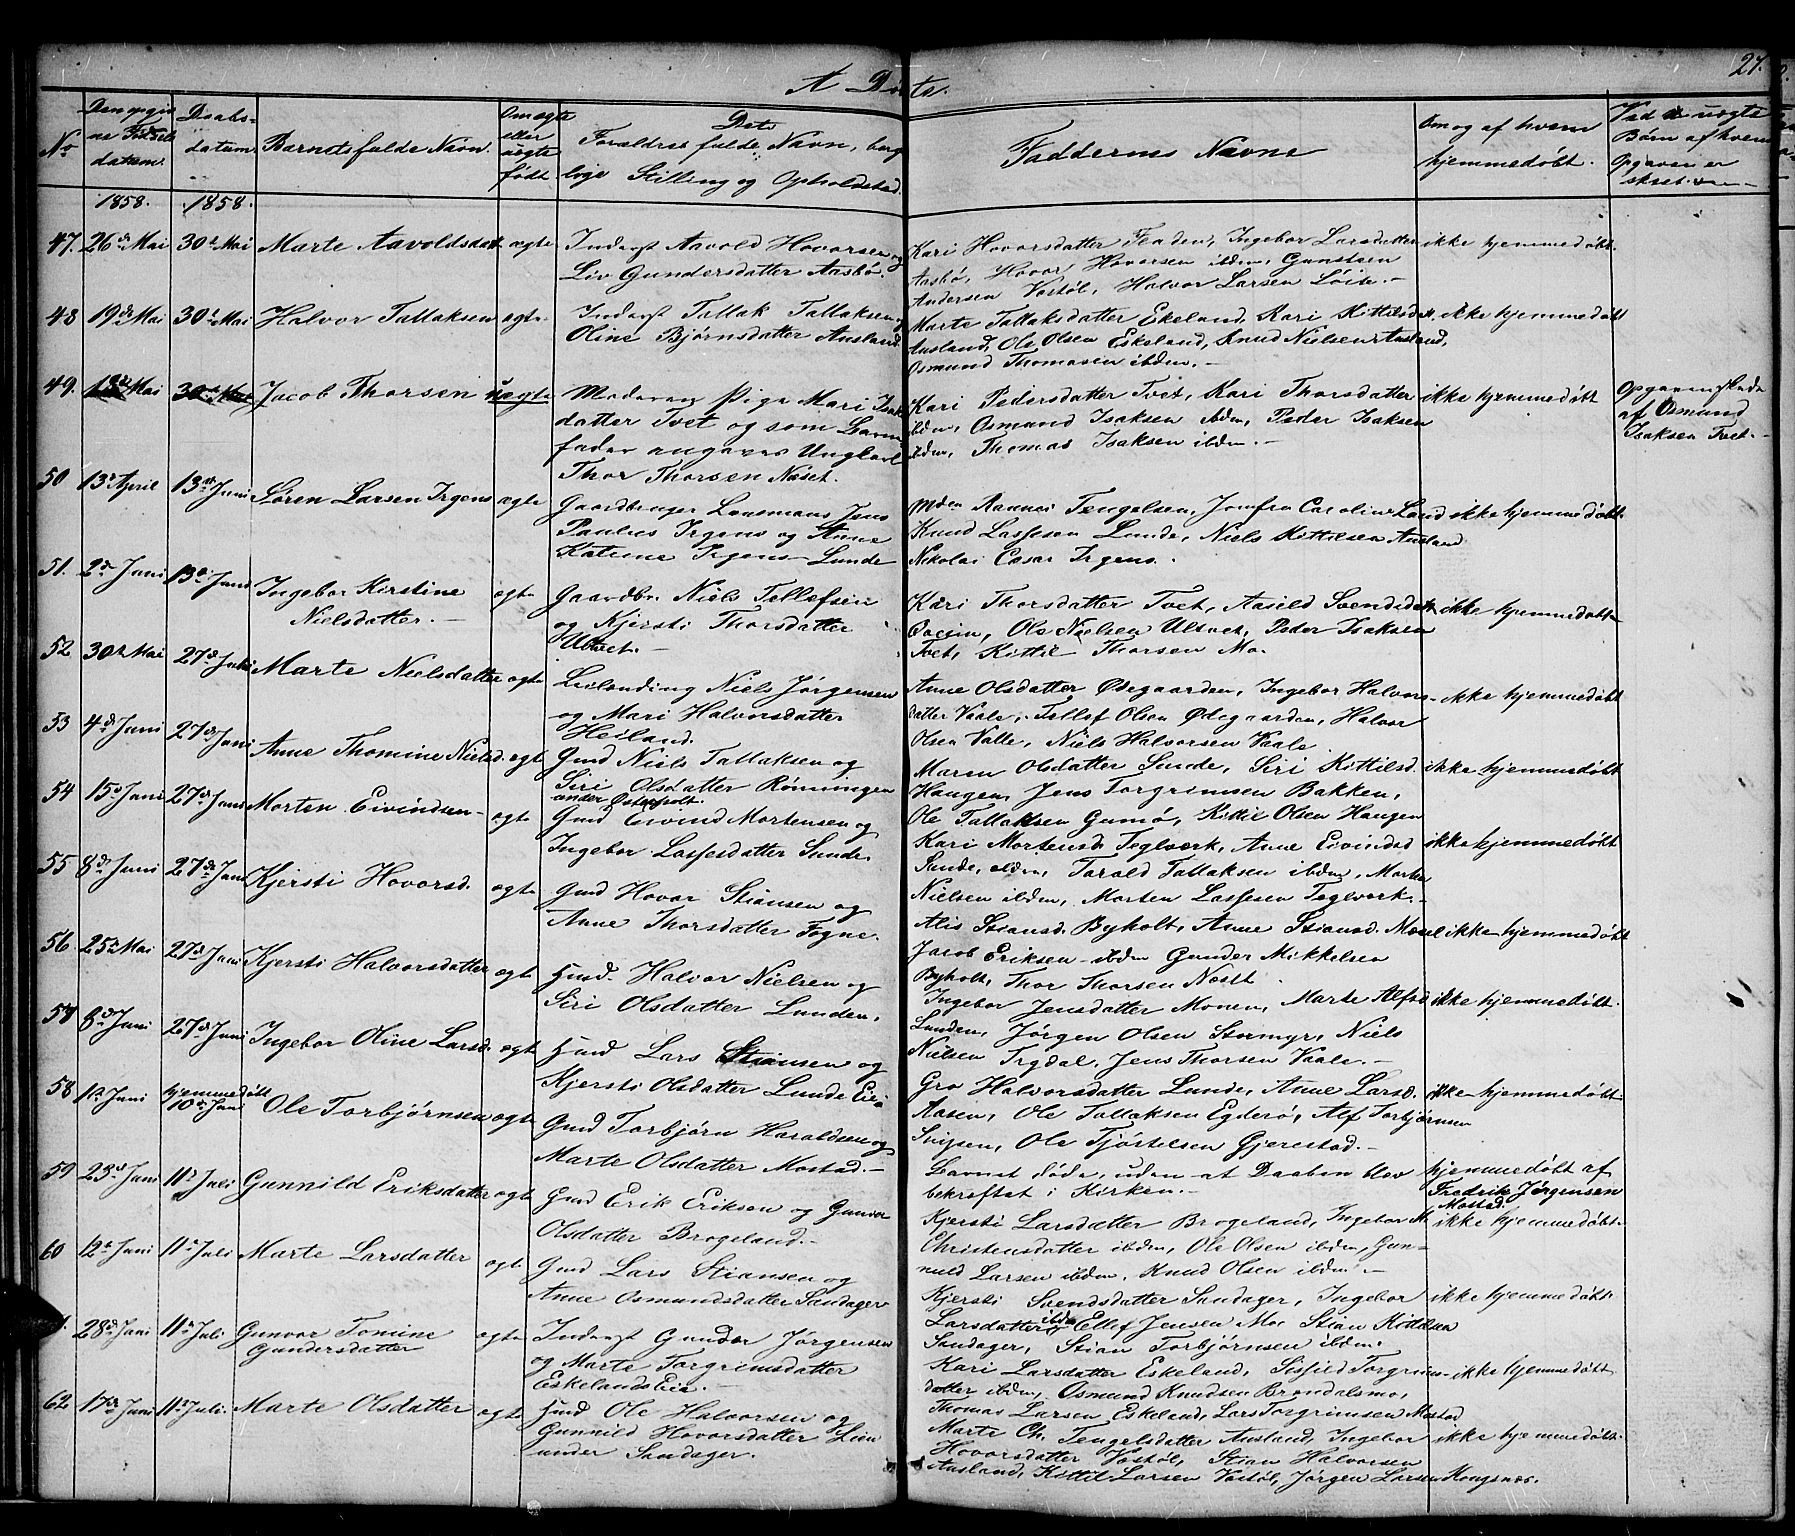 A Døbte.
27.
No
Den opgivne Fødselsdatum.
Daabsdatum.
Barnets fulde Navn.
Om ægte eller uægte født.
Dets Forældres fulde Navn, borgerlige Stilling og Opholdsted.
Faddernes Navne
Om og af hvem hjemmedøbt.
Ved uægte Børn af hvem Opgaven er skeet.
1858. 1858.
47. 26de Mai 30te Mai Marte Aavoldsdatt ægte Inderst Aavold Hovorsen og
Liv Gundersdatter Aasbø.
Kari Hovorsdatter Fladen, Ingebor Larsdatter ikke hjemmedøbt.
Aasbø, Hovor Hovorsen ibdm, Gunsteen
Andersen Vestøl, Halvor Larsen Løite.
48 19de Mai 30te Mai Halvor Tallaksen ægte Inderst Tallak Tallaksen og
Oline Bjørnsdatter Ausland.
Marte Tallaksdatter Ekeland, Kari Kittilsdatt. ikke hjemmedøbt
Ausland, Ole Olsen Eskeland, Knud Nielsen Ausland,
Osmund Thomasen ibdm.
49. 18de Mai 30te Mai Jacob Thorsen uægte Moderen Pige Mari Isak
datter Tvet og som Barne
fader angaves Ungkarl
Thor Thorsen Næset.
Kari Pedersdatter Tvet, Kari Thorsdatter ikke hjemmedøbt
ibdm, Osmund Isaksen ibdm, Peder Isaksen
ibdm, Thomas Isaksen ibdm.
Opgaven skede
af Osmund
Isaksen Tvet.
50 13de April 13de Juni Søren Larsen Irgens ægte Gaardbruger Lensmans Jens
Paulus Irgens og Anne
Katrine Irgens Lunde
Mdm Rannei Tengelsen, Jomfru Caroline Lund ikke hjemmedøbt.
Knud Lassesen Lunde, Niels Kittilsen Ausland
Nikolai Cæsar Irgens.
51. 2de Juni 13de Juni Ingebor Kirstine
Nielsdatter.
ægte Gaardbr. Niels Tellefsen
og Kjersti Thorsdatter
Ultvet.
Kari Thorsdatter Tvet, Aasild Svendsdatt ikke hjemmedøbt
Ole Nielsen Ultvet, Peder Isaksen
Tvet, Kittil Thorsen Mo.
52 30te Mai 27de Juni Marte Nielsdatter ægte Leilending Niels Jørgensen
og Mari Halvorsdatter
Heiland.
Anne Olsdatter Ødegaarden, Ingebor Halvors- ikke hjemmedøbt
datter Vaale, Tellef Olsen Ødegaarden, Halvor
Olsen Valle, Niels Halvorsen Vaale.
53 4de Juni 27de Juni Anne Thomine Nielsd. ægte Gmd Niels Tallaksen og
Siri Olsdatter Rønningen
under Østerholt.
Maren Olsdatter Sunde, Siri Kittilsd. ikke hjemmedøbt
Haugen, Jens Torgrimsen Bakken,
Ole Tallaksen Gumø, Kittil Olsen Haugen
54 15de Juni 27de Juni Morten Eivindsen ægte Gmd Eivind Mortensen og
Ingebor Lassesdatter Sunde.
Kari Mortensd. Teglverk, Anne Eivindsd ikke hjemmedøbt
Sunde, Tarald Tallaksen ibdm, Morten
Nielsen ibdm, Morten Lassesen Teglverk.
55 8de Juni 27de Juni Kjersti Hovorsd. ægte Gmd Hovor Stiansen og
Anne Thorsdatter Fogne.
Alis Stiansd. Byholt, Anne Stiansd. Moe ikke hjemmedøbt
Jacob Eriksen ibdm Gunder Mikkelsen
Byholt, Thor Thorsen Næset
56. 25de Mai 27de Juni Kjersti Halvorsdatter ægte Hmd. Halvor Nielsen og
Siri Olsdatter Lunden.
Ingebor Jensdatter Monen, Marte Alfsd ikke hjemmedøbt.
Lunden, Jørgen Olsen Stormyr, Niels
Nielsen Trydal, Jens Thorsen Vaale.
57 8de Juni 27de Juni Ingebor Oline Larsd. ægte Hmd Lars Stiansen og
Kjersti Olsdatter Lunde Eie
Gro Halvorsdatter Lunde, Anne Larsd. ikke hjemmedøbt.
Aasen, Ole Tallaksen Egderø, Alf Torbjørnsen
Svipsen, Ole Tjøstelsen Gjerestad.
58 1te Juni hjemmedøbt
10de Juni Ole Torbjørnsen ægte Gmd Torbjørn Haraldsen og
Marte Olsdatter Mostad.
Barnet døde, uden at Daaben blev
bekræftet i Kirken.
hjemmedøbt af
Fredrik Jørgensen
Mostad.
59 23de Juni 11te Juli Gunnild Eriksdatter ægte Gmd Erik Eriksen og Gunvor
Olsdatter Brogeland.
Kjersti Larsdatter Brogeland, Ingebor M. ikke hjemmedøbt.
Christensdatter ibdm, Ole Olsen ibdm, Gun-
nuld Larsen ibdm, Knud Olsen ibdm.
60 12te Juni 11te Juli Marte Larsdatter ægte Gmd Lars Stiansen og
Anne Osmundsdatter Sandager
Kjersti Svendsdatter Sandager, Ingebor ikke hjemmedøbt
Larsdatter ibdm, Ellef Jensen Moe Stian Kittilsen
Sandager, Stian Torbjørnsen ibdm.
28de Juni 11te Juli Gunvor Tomine
Gundersdatter
ægte Inderst Gunder Jørgensen
og Marte Torgrimsdatter
Eskelands Eie.
Kari Larsdatter Eskeland, Sigfeld Torgrims- ikke hjemmedøbt
datter ibdm, Osmund Knudsen Brøndalsmo,
Thomas Larsen Eskeland, Lars Torgrimsen Mostad
62 17de Juni 11te Juli. Marte Olsdatter ægte Hmd Ole Halvorsen og
Gunnild Hovorsdatter Lien
under Sandager.
Marte Ch. Tengelsdatter Ausland, Ingebor ikke hjemmedøbt.
Hovorsdatter Vestøl, Stian Halvorsen
Ausland, Kittil Larsen Vestøl, Jørgen Larsen Kongsnæs.